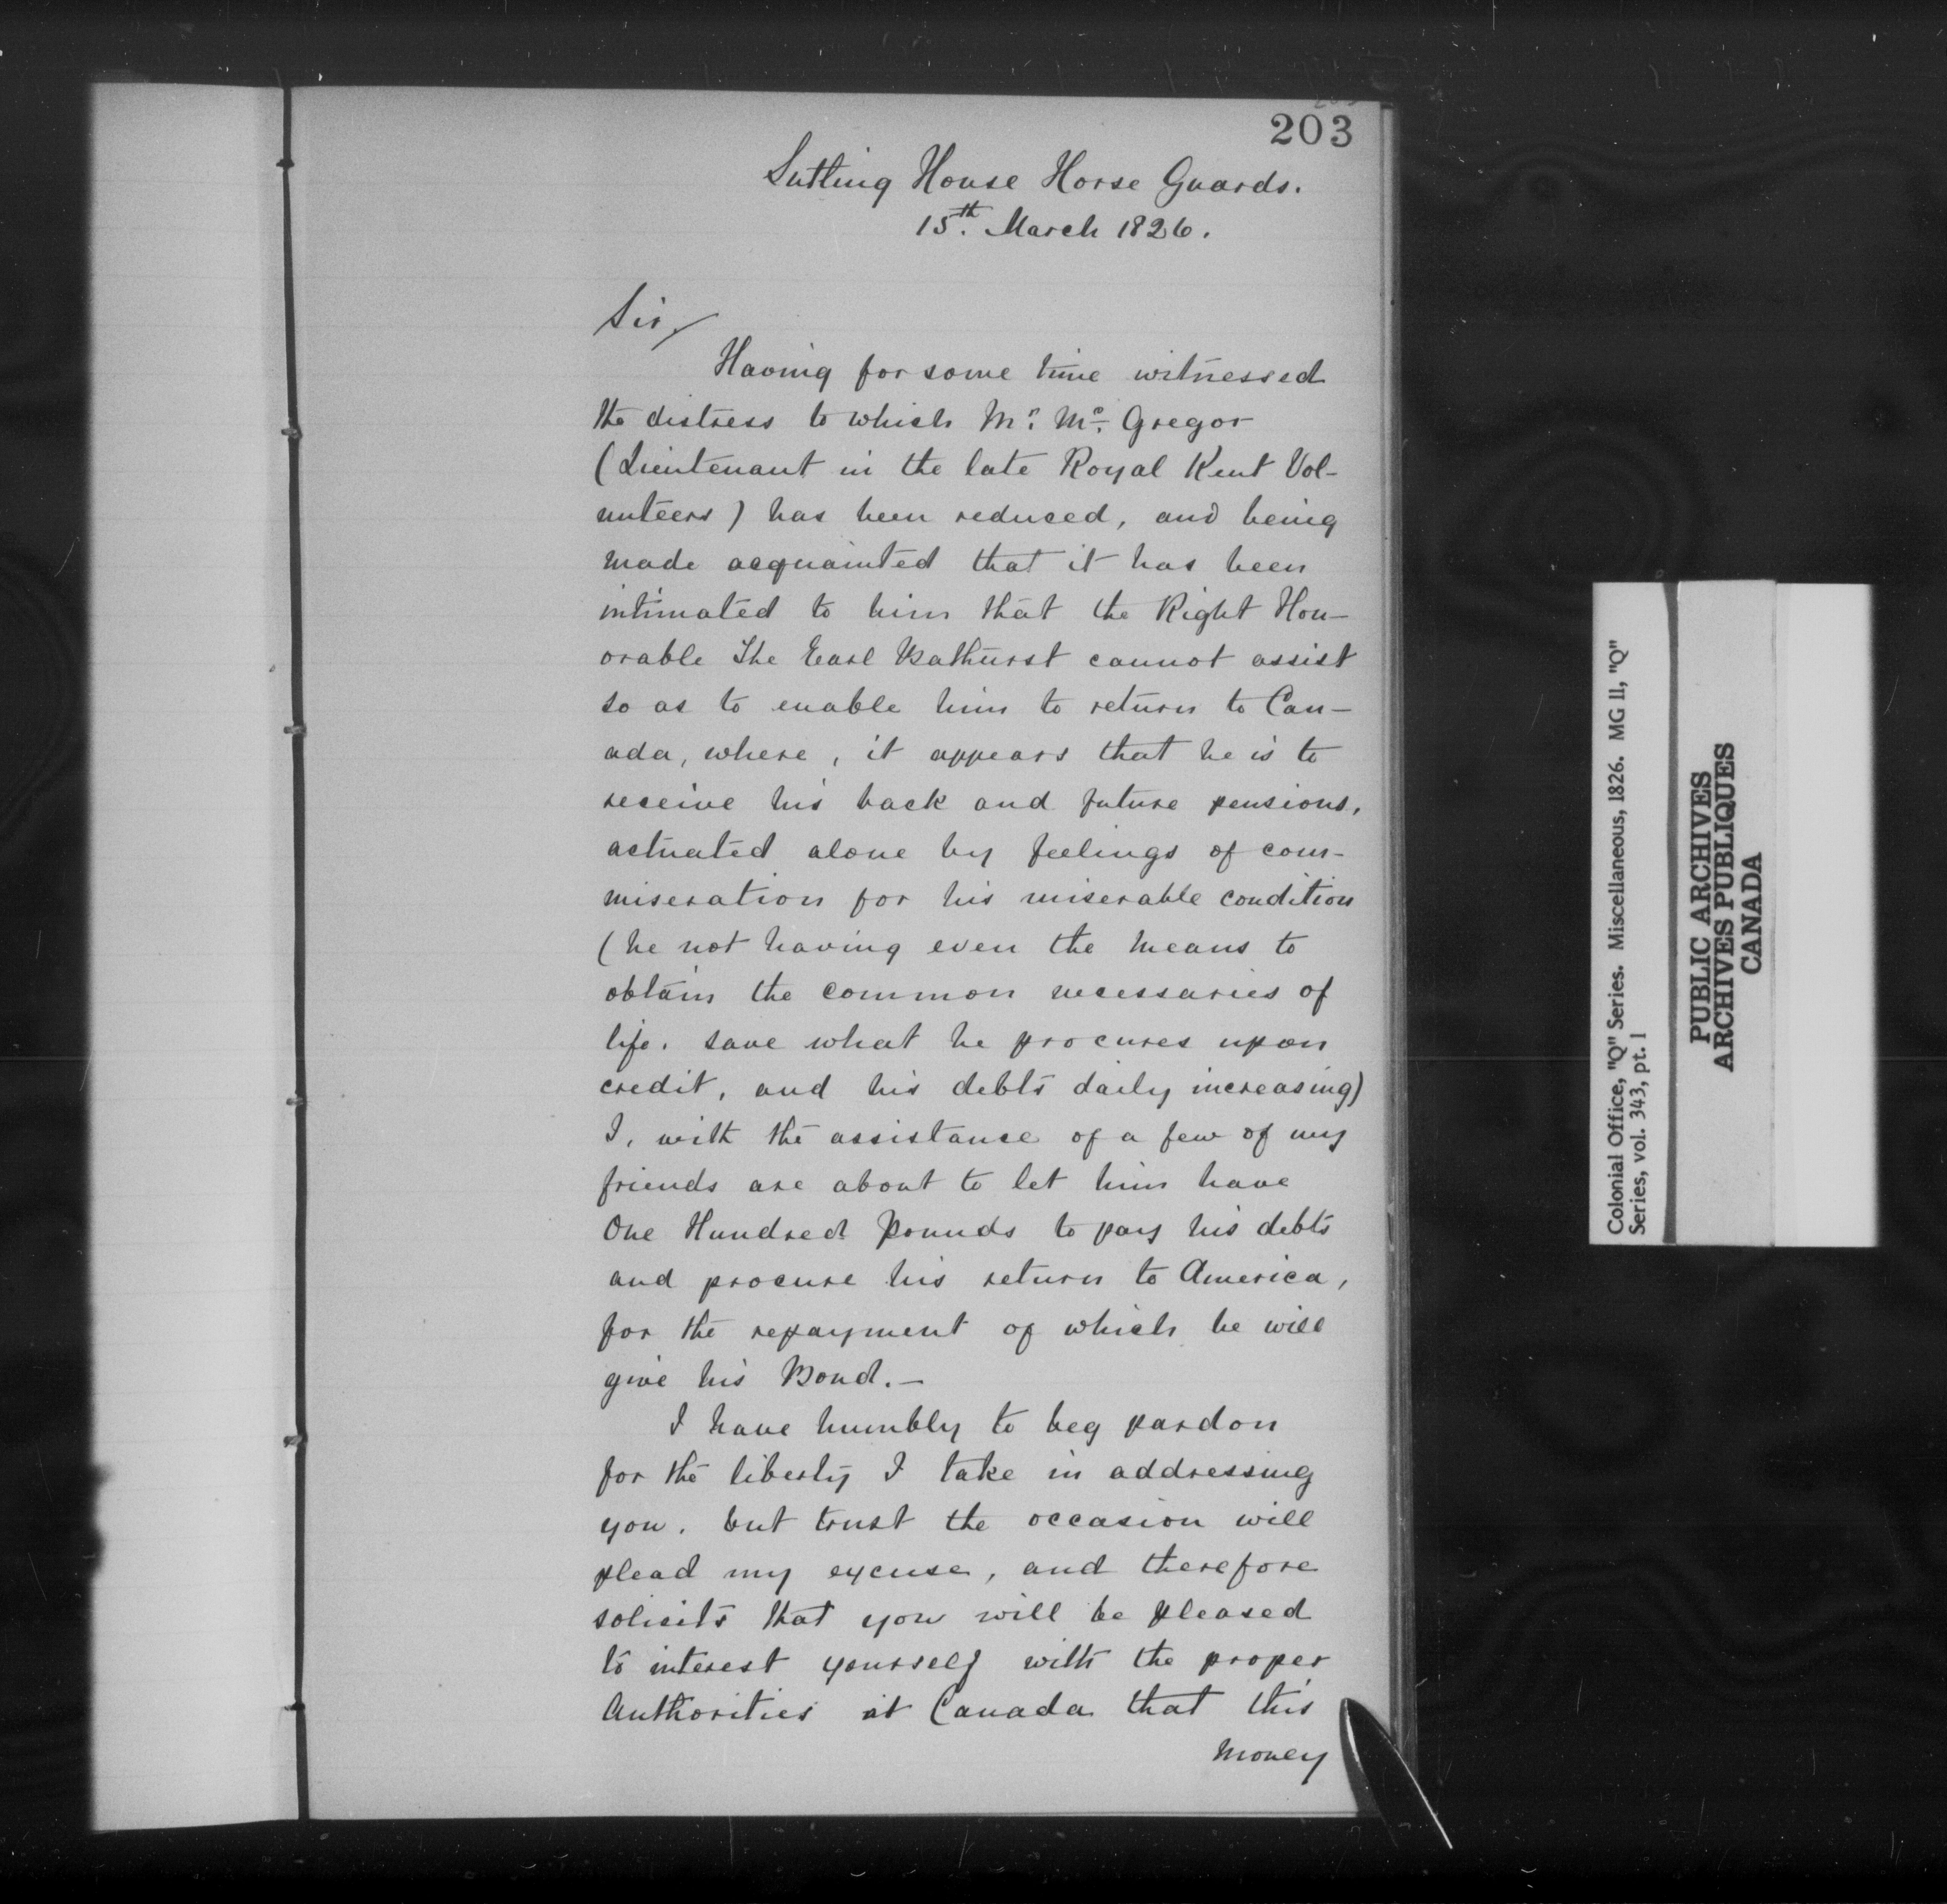 203
Sutling House Horse Guards.
15th. March 1826.
Sir,
Having for some time witnessed
the distress to which Mr. Mc. Gregor
(Lieutenant in the late Royal Kent Vol-
unteers) has been reduced, and being
made acquainted that it has been
intimated to him that the Right Hon-
orable The Earl Bathurst cannot assist
so as to enable him to return to Can-
ada, where, it appears that he is to
receive his back and future pensions,
actuated alone by feelings of com-
miseration for his miserable condition
(he not having even the means to
obtain the common necessaries of
life, save what he procures upon
credit, and his debts daily increasing)
I, with the assistance of a few of my
friends are about to let him have
One Hundred Pounds to pay his debts
and procure his return to America,
for the repayment of which he will
give his Bond.—
I have humbly to beg pardon
for the liberty I take in addressing
you, but trust the occasion will
plead my excuse, and therefore
solicits that you will be pleased
to interest yourself with the proper
Authorities at Canada that this
money
Colonial Office, "Q" Series. Miscellaneous, 1826. MG 11, "Q"
Series, vol. 343, pt. 1
PUBLIC ARCHIVES
ARCHIVES PUBLIQUES
CANADA